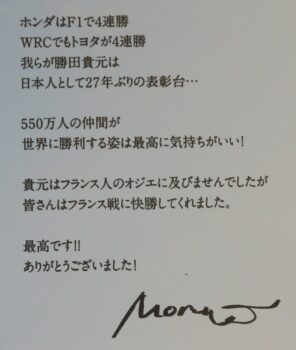 ホンダはF1で4連勝
WRCでもトヨタが4連勝
我らが勝田貴元は
日本人として27年ぶりの表彰台…
550万人の仲間が
世界に勝利する姿は最高に気持ちがいい!
貴元はフランス人のオジエに及びませんでしたが
皆さんはフランス戦に快勝してくれました。
最高です!!
ありがとうございました!